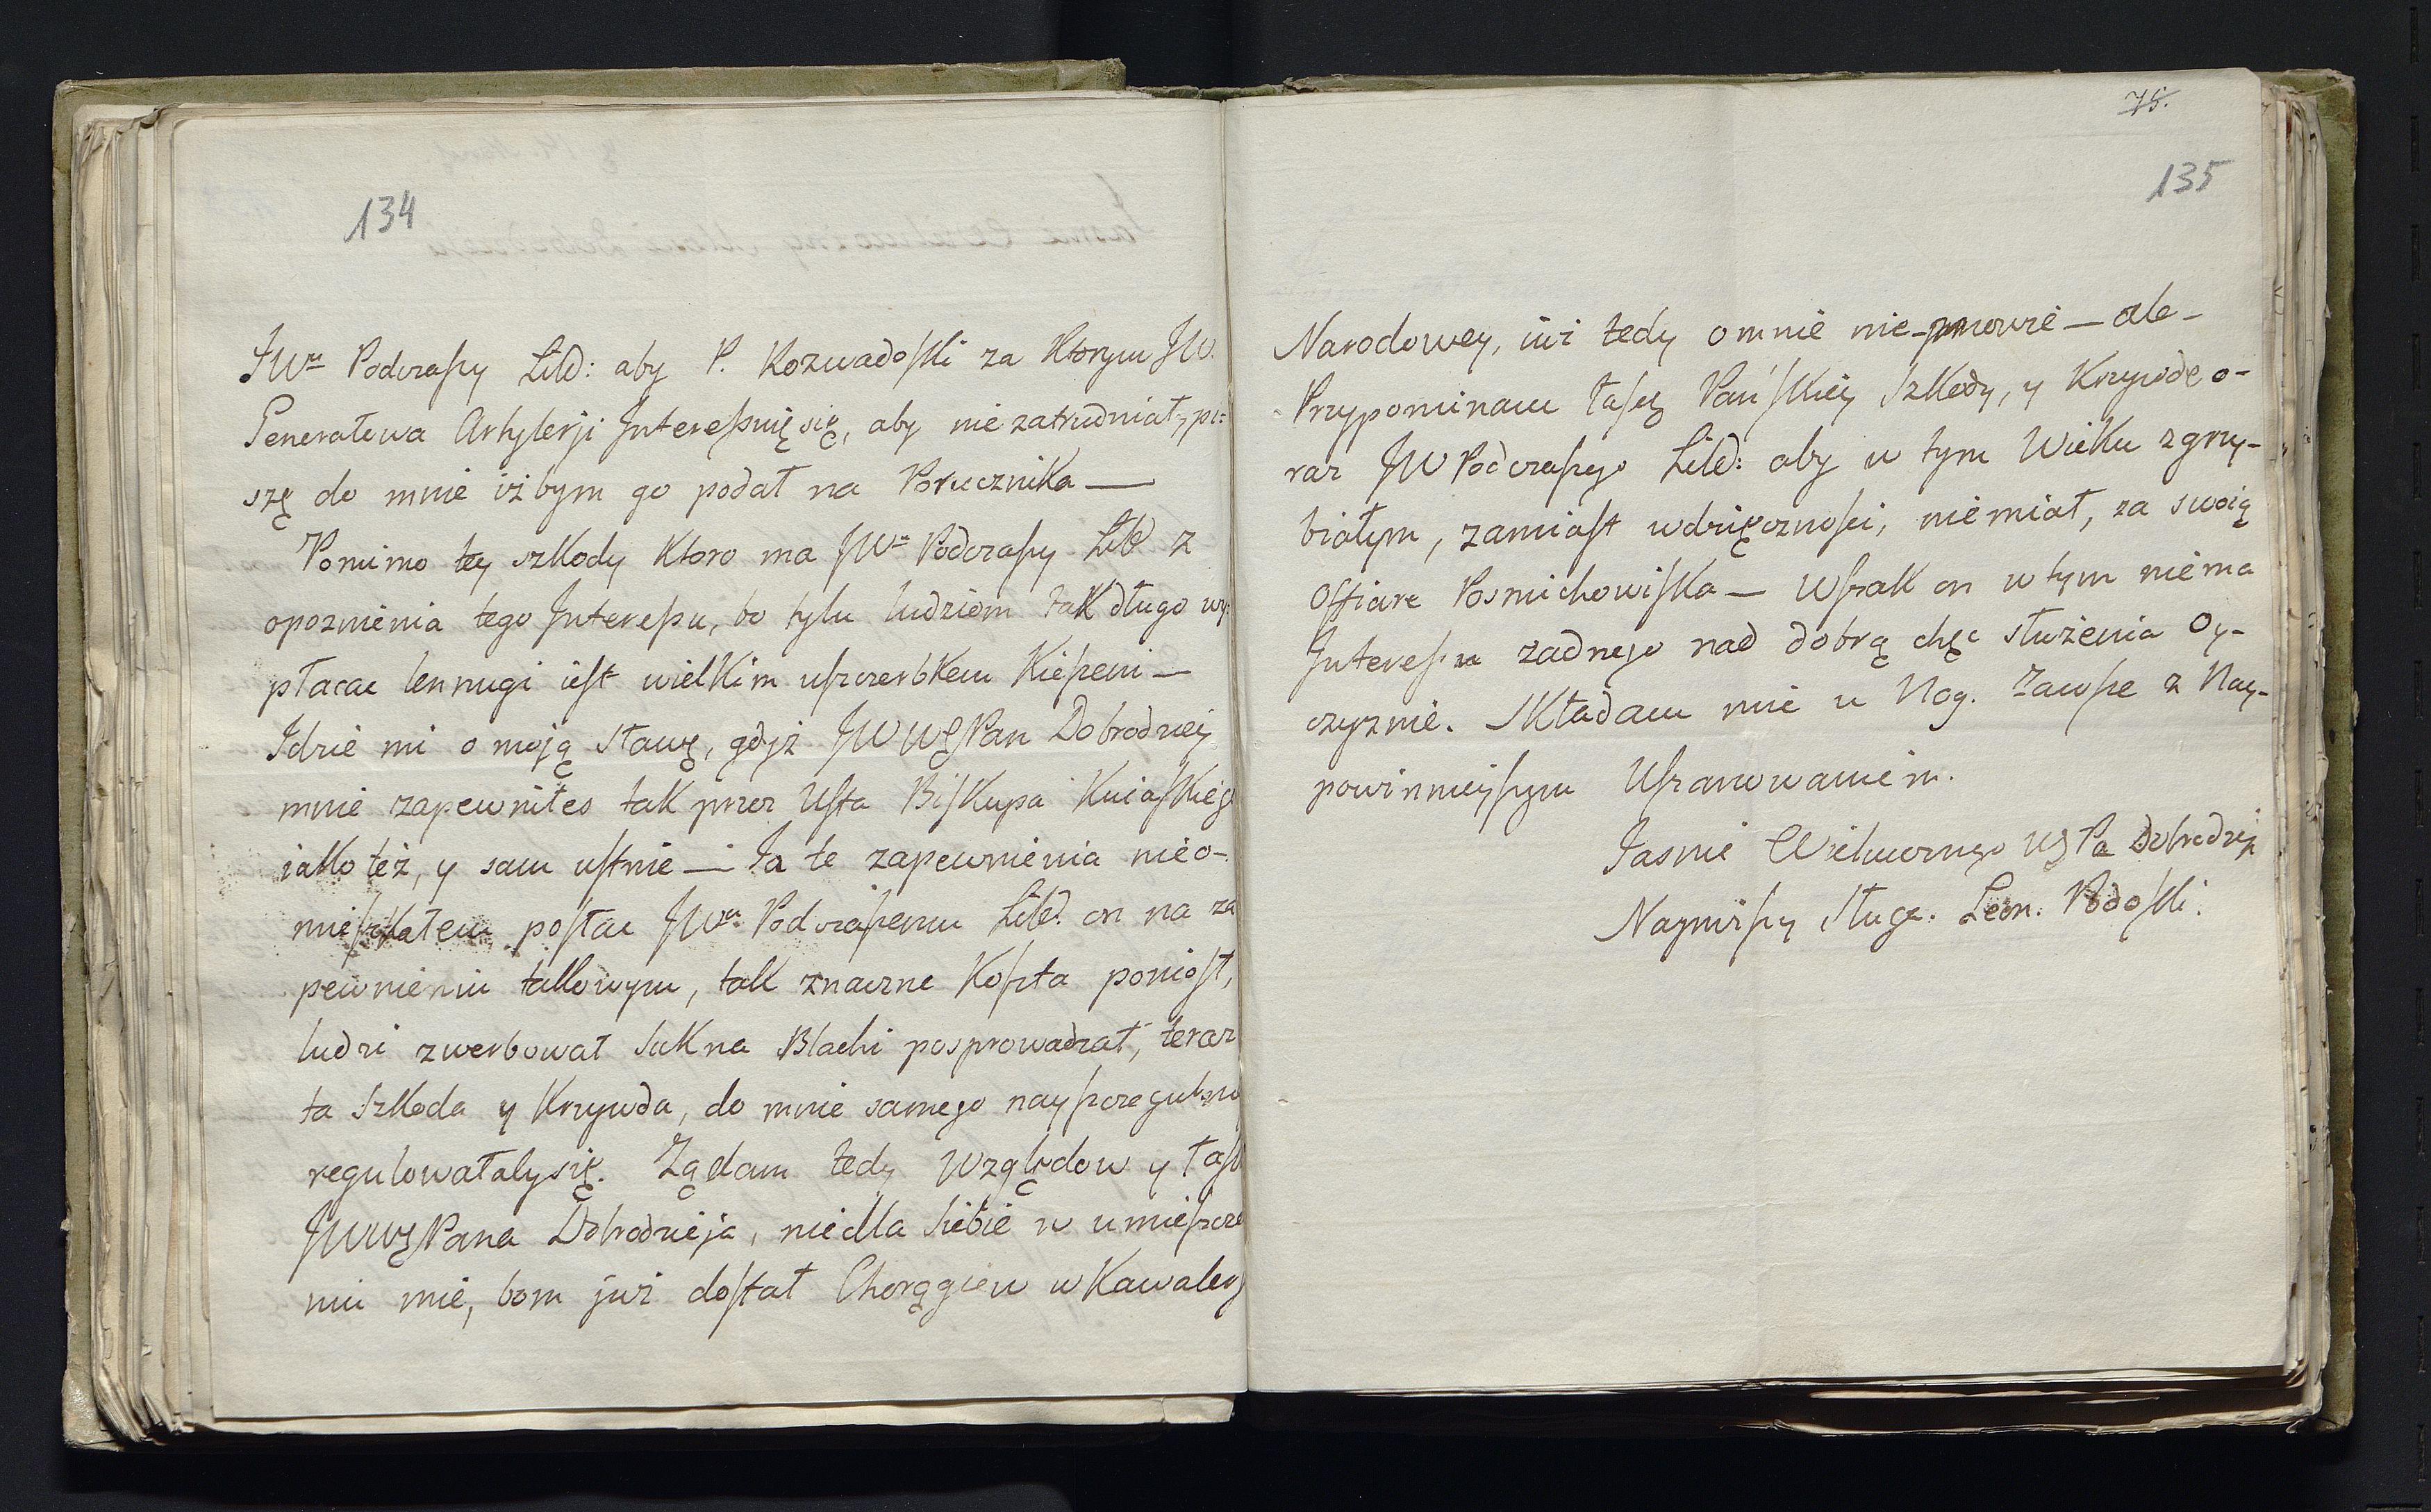 134
JWn Podczaszy Litt: aby P. Rozwadoski za ktorym JW.
Generałowa Artylerji Interessuię się, aby nie zatrudniał, pi:
szę do mnie iżbym go podał na Porucznika —
Pomimo tey szkody ktoro ma JWn Podczaszy Litt z
opoznienia tego Interessu, bo tylu ludziom tak długo wy:
płacac lennugi iest wielkim uszczerbkem Kieszeni —
Idzie mi o moją sławę, gdyż JWWgPan Dobrodziej
mnie zapewniłes tak przez Usta Biskupa Kuiaskiego
iako też, y sam ustnie — Ja te zapewnienia nieo-
mieszkałem posłac JWu Podczaszemu Litt. on na za
pewnieniu takowym, tak znaczne Koszta poniosł,
ludzi zwerbował sukna Blachi posprowadzał, teraz
ta szkoda y Krzywda, do mnie samego nayszczegulnie
regulowałaly się. Żądam tedy Względow y łask
JWWgPana Dobrodzieja, nie dla siebie w umieszcze
niu mie, bom już dostał Chorągiew w Kawalery
75.
135
Narodowey, iuż tedy o mnie nie mowie — ale —
Przypominam łasce Pańskiey szkody, y Krzywdę o-
raz JW Podczaszego Litt: aby w tym Wieku zgrzy-
białym, zamiast wdzięcznosci, nie miał, za swoią
Offiare Posmichowiska — Wszak on w tym nie ma
Interessu zadnego nad dobrą chęc służenia Oy-
czyznie. Składam mie u Nog. Zawsze z Nay-
powinnieyszym Uszanowaniem.
Jasnie Wielmoznego Wg Pa Dobrodzieja
Nayniższy Sługa. Leon. Podoski.